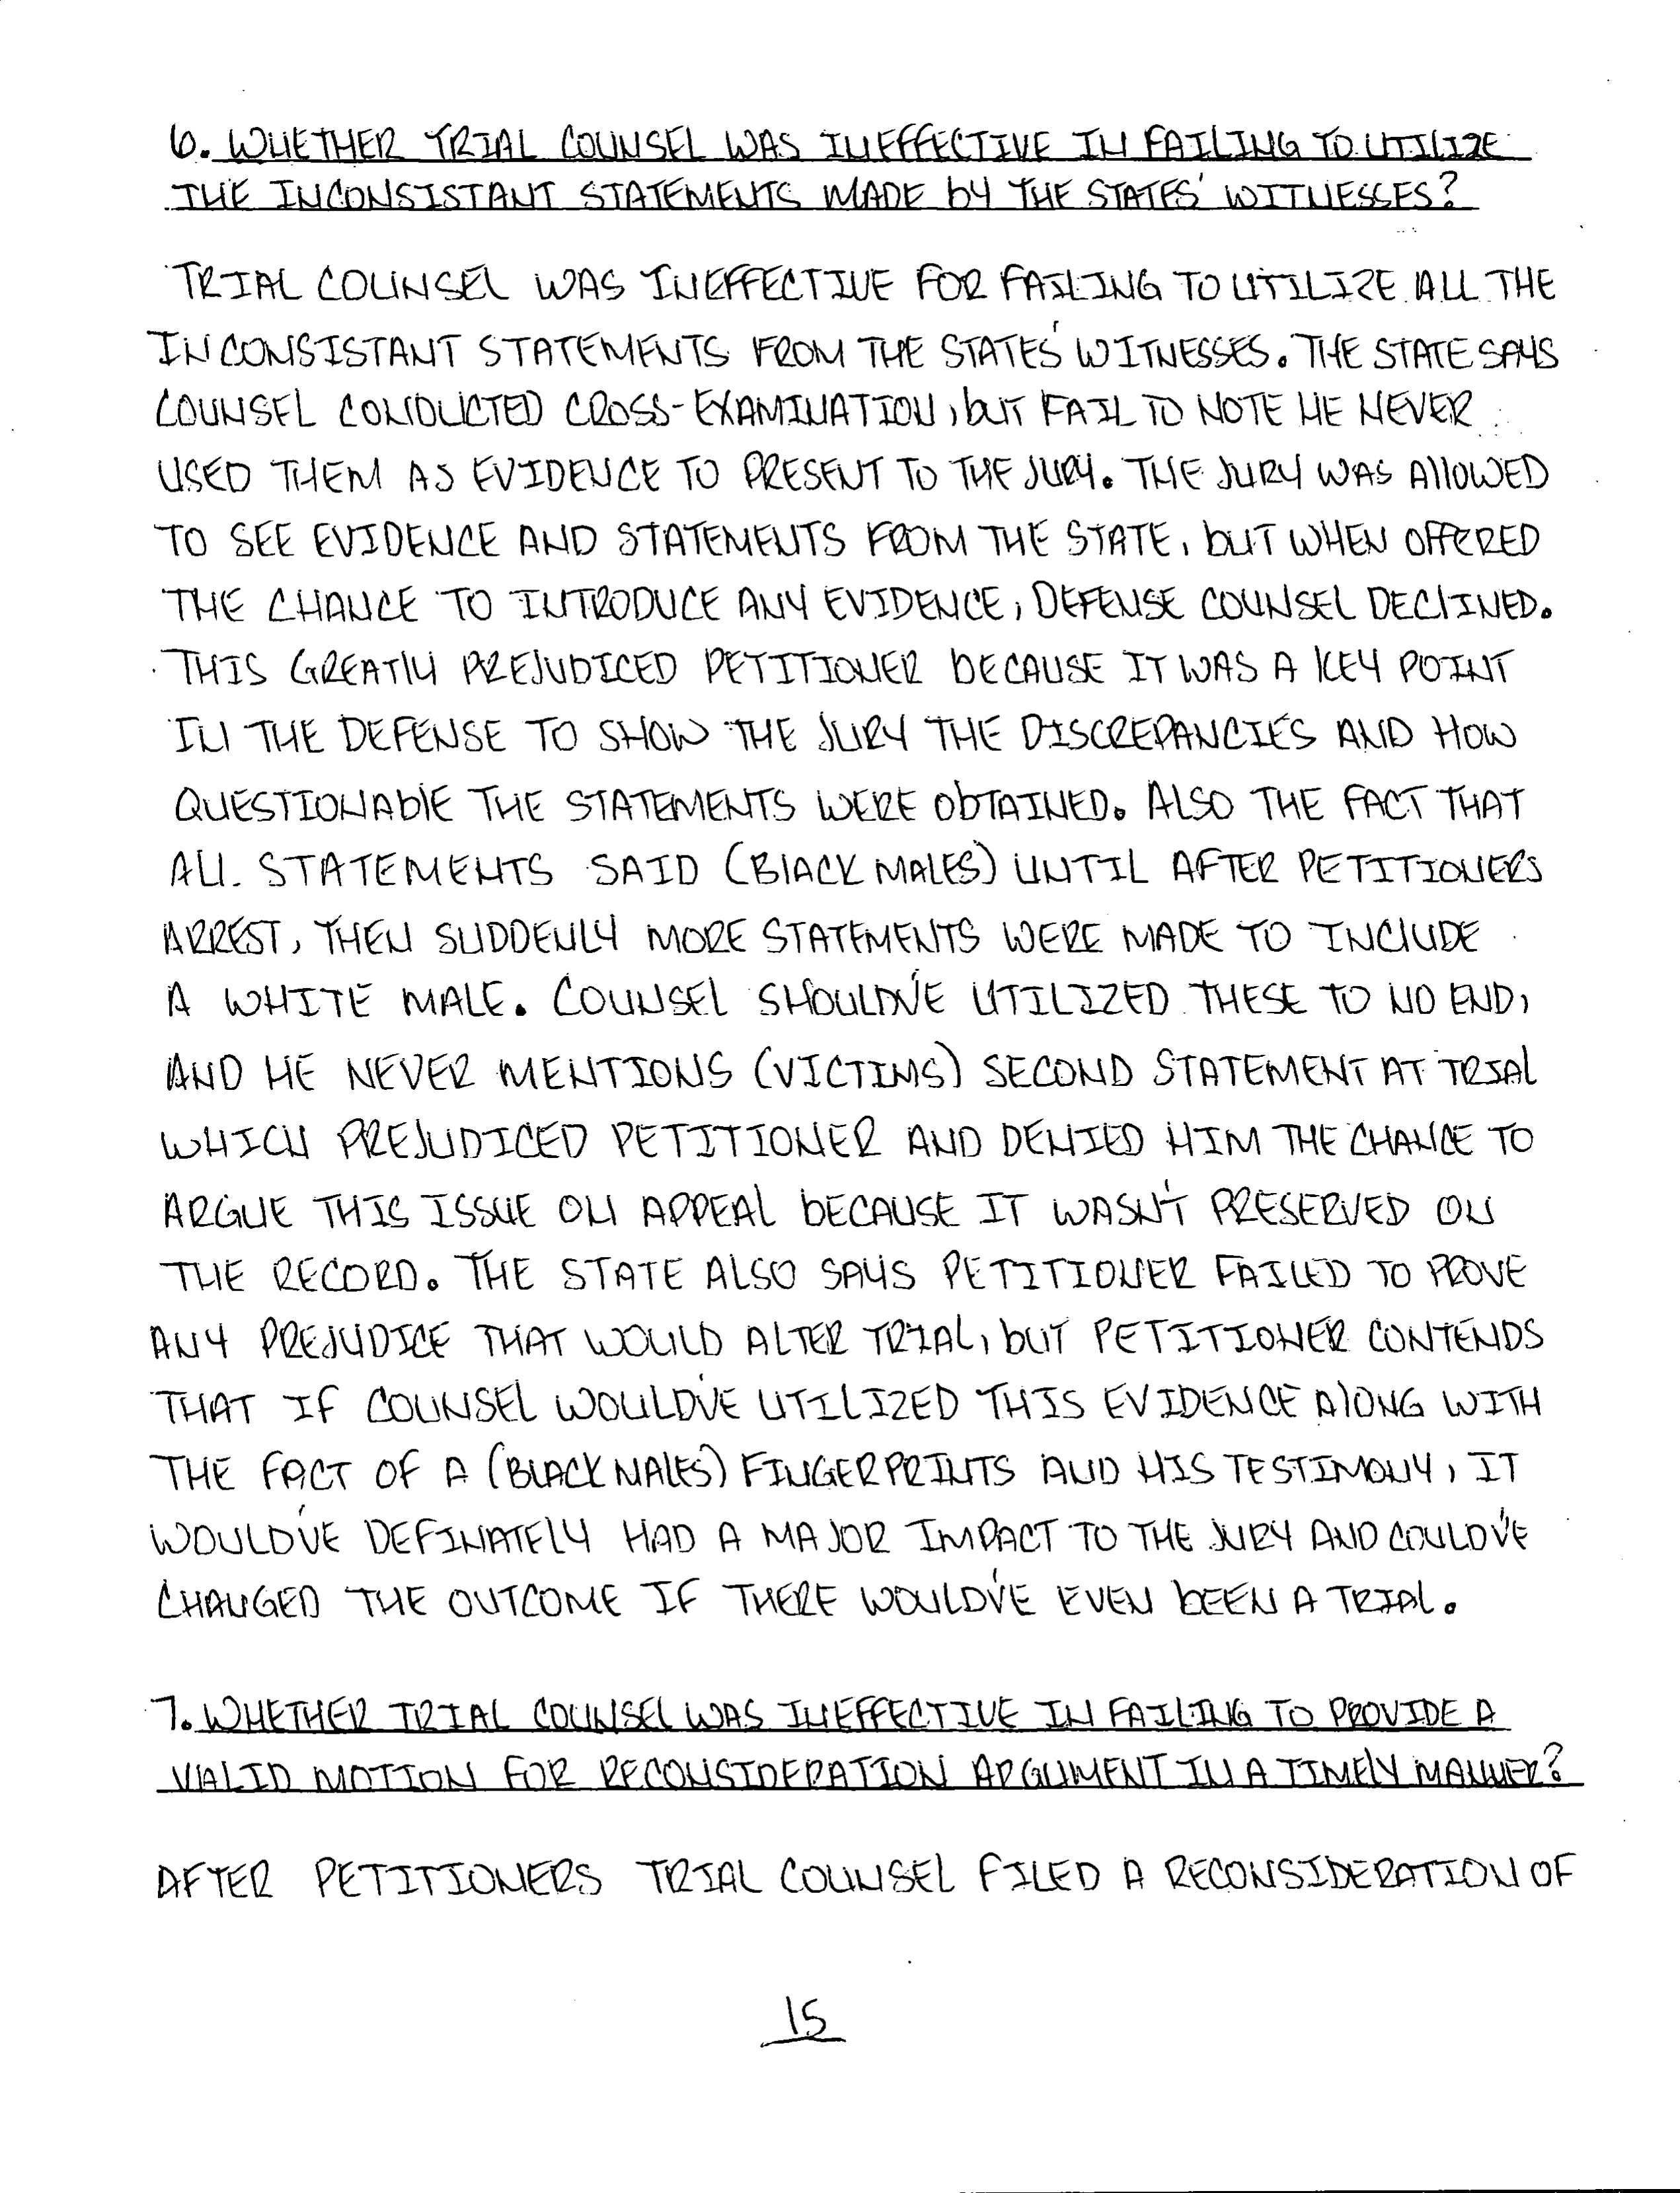 6. WHETHER TRIAL COUNSEL WAS INEFFECTIVE IN FAILING TO UTILIZE
THE INCONSISTANT STATEMENTS MADE by THE STATES' WITNESSES?
TRIAL COUNSEL WAS INEFFECTIVE FOR FAILING TO UTILIZE ALL THE
INCONSISTANT STATEMENTS FROM THE STATES' WITNESSES. THE STATE SAYS
COUNSEL CONDUCTED CROSS-EXAMINATION, bUT FAIL TO NOTE HE NEVER
USED THEM AS EVIDENCE TO PRESENT TO THE JURY. THE JURY WAS AllOWED
TO SEE EVIDENCE AND STATEMENTS FROM THE STATE, bUT WHEN OFFERED
THE CHANCE TO INTRODUCE ANY EVIDENCE, DEFENSE COUNSEL DEClINED.
THIS GREATlY PREJUDICED PETITIONER bECAUSE IT WAS A KEY POINT
IN THE DEFENSE TO SHOW THE JURY THE DISCREPANCIES AND HOW
QUESTIONAblE THE STATEMENTS WERE ObTAINED. ALSO THE FACT THAT
ALL STATEMENTS SAID (BlACK MALES) UNTIL AFTER PETITIONERS
ARREST, THEN SUDDENLY MORE STATEMENTS WERE MADE TO INClUDE
A WHITE MALE. COUNSEL SHOULD'VE UTILIZED THESE TO NO END,
AND HE NEVER MENTIONS (VICTIMS) SECOND STATEMENT AT TRIAl
WHICH PREJUDICED PETITIONER AND DENIED HIM THE CHANCE TO
ARGUE THIS ISSUE ON APPEAl bECAUSE IT WASN'T PRESERVED ON
THE RECORD. THE STATE ALSO SAYS PETITIONER FAILED TO PROVE
ANY PREJUDICE THAT WOULD ALTER TRIAL, bUT PETITIONER CONTENDS
THAT IF COUNSEL WOULD'VE UTILIZED THIS EVIDENCE AlONG WITH
THE FACT OF A (BLACK MALES) FINGERPRINTS AND HIS TESTIMONY, IT
WOULD'VE DEFINATELY HAD A MAJOR IMPACT TO THE JURY AND COULD'VE
CHANGED THE OUTCOME IF THERE WOULD'VE EVEN bEEN A TRIAL.
7. WHETHER TRIAL COUNSEL WAS INEFFECTIVE IN FAILING TO PROVIDE A
VALID MOTION FOR RECONSIDERATION ARGUMENT IN A TIMELY MANNER?
AFTER PETITIONERS TRIAL COUNSEL FILED A RECONSIDERATION OF
15